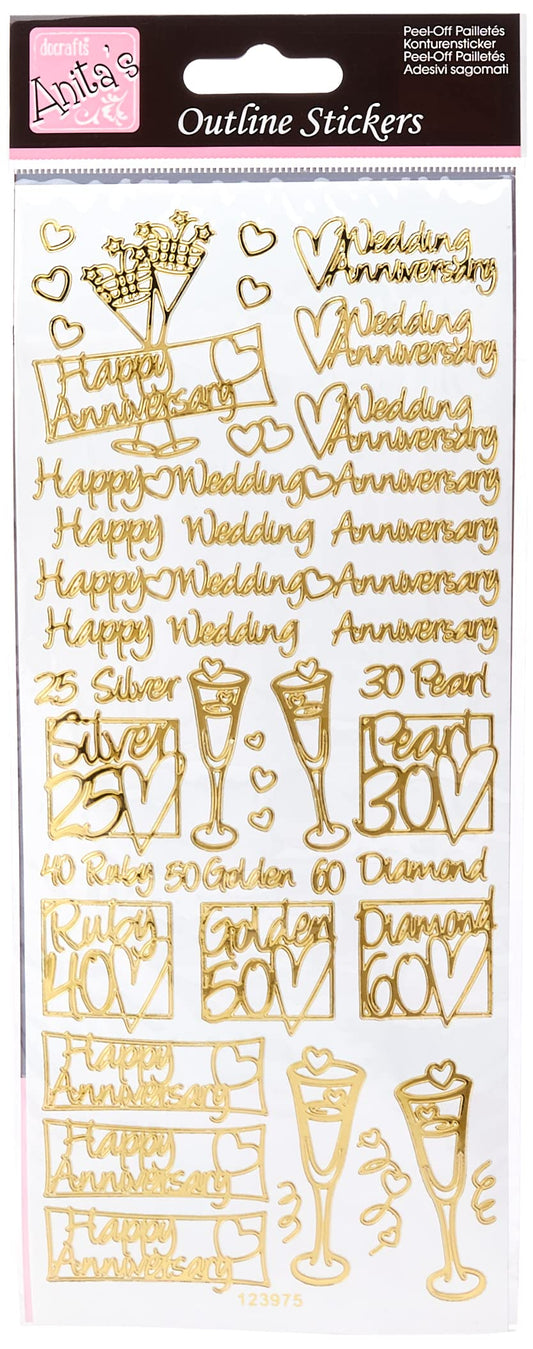 docrafts
Anita's
Peel-Off Pailletés
Konturensticker
Peel-Off Pailletés
Adesivi sagomati
Outline Stickers
Wedding
Anniversary
Happy
Anniversary
Wedding
Anniversary
Wedding
Anniversary
Happy Wedding Anniversary
Happy Wedding Anniversary
Happy Wedding Anniversary
Happy Wedding Anniversary
25 Silver
30 Pearl
Silver
25
Pearl
30
40 Ruby 50 Golden 60 Diamond
Ruby
40
Golden
50
Diamond
60
Happy
Anniversary
Happy
Anniversary
Happy
Anniversary
123975